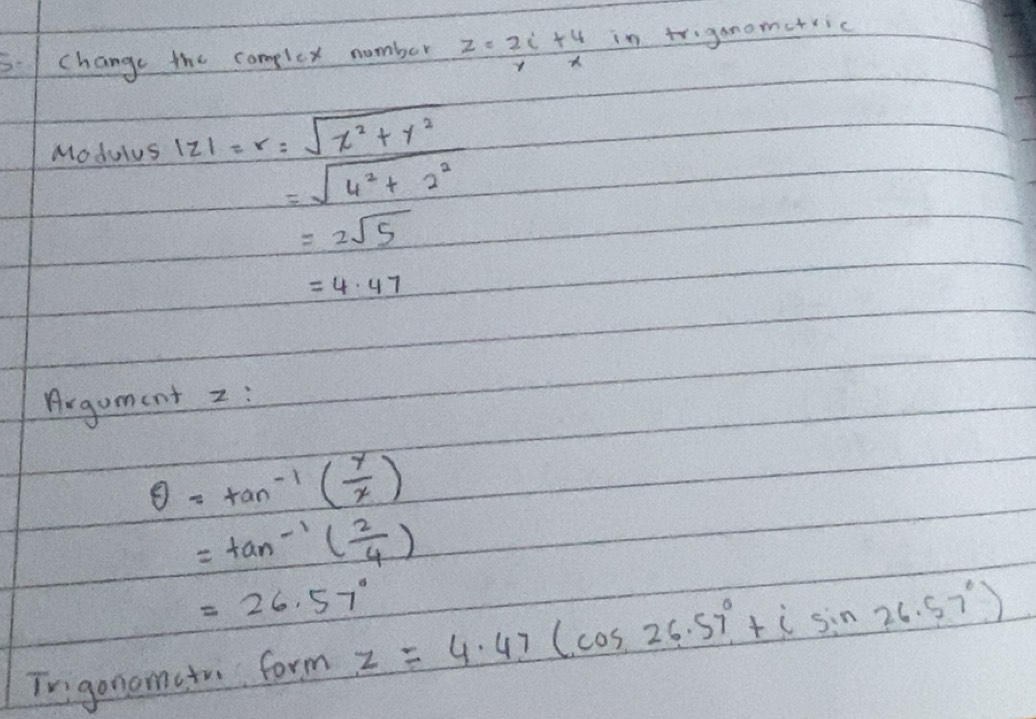 5. Change the complex number z = 2i + 4 in trigonometric
y x
Modulus |z| = r = √(x² + y²)
= √(4² + 2²)
= 2√5
= 4.47
Argument z :
θ = tan⁻¹ (y/x)
= tan⁻¹ (2/4)
= 26.57°
Trigonometri form z = 4.47 (cos 26.57° + i sin 26.57°)